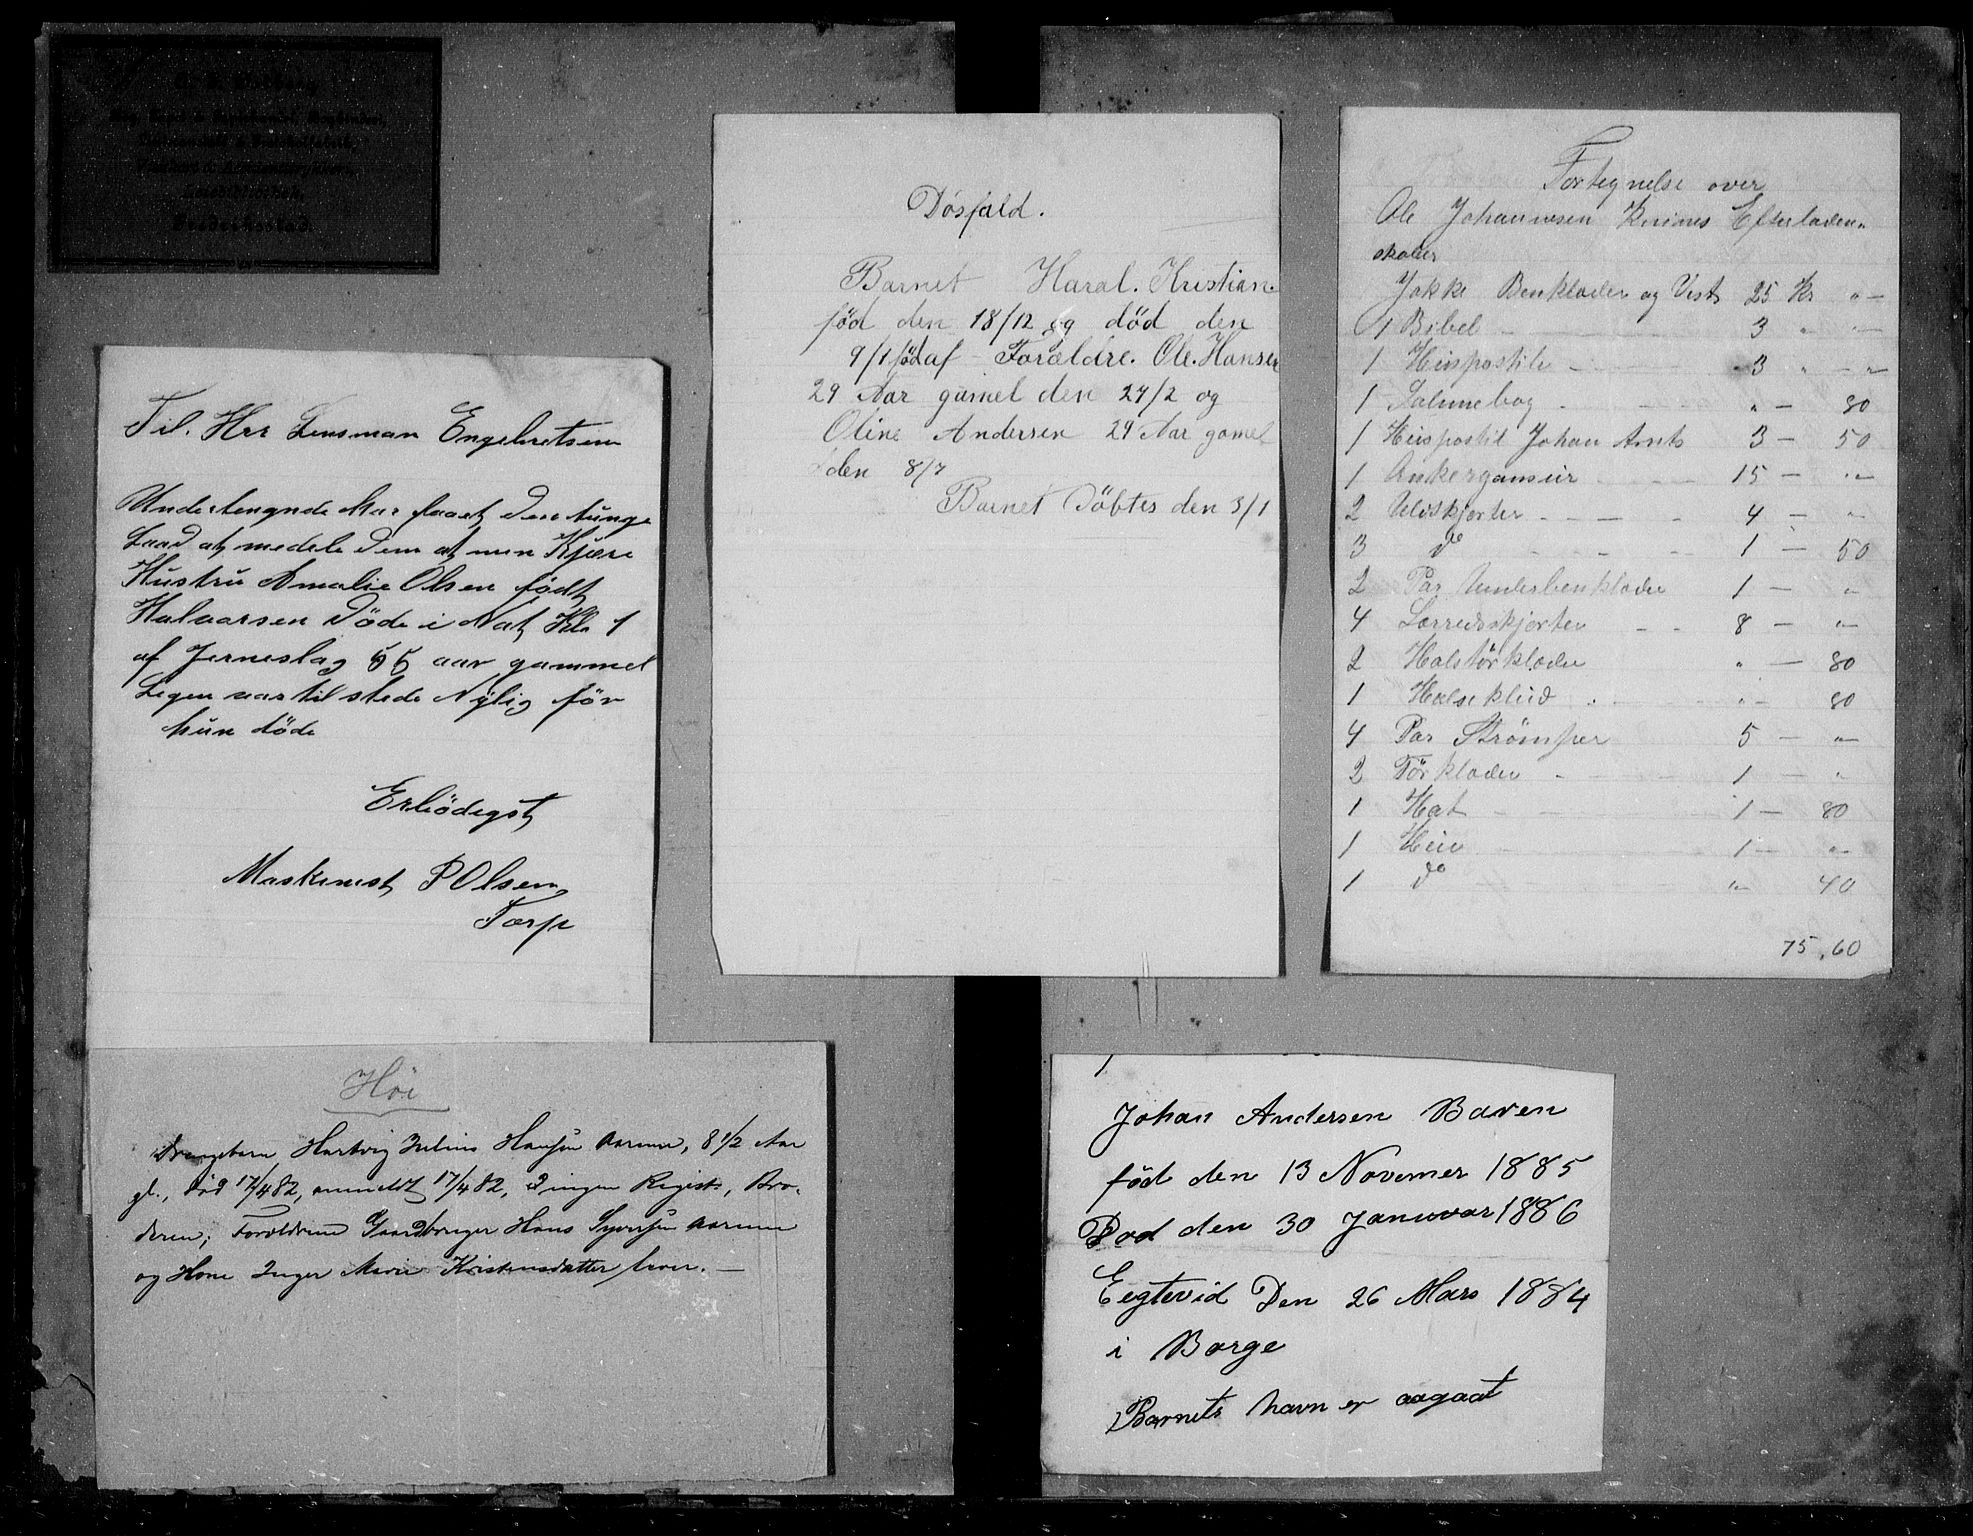 Fredriksstad.
Til. Hrr Lensman Engebretsen
Undertengnde har faaet den tunge
Laad at medele Dem at min Kjære
Hustru Amalie Olsen født
Halvorsen Døde i Nat Kl. 1
af Jerneslag 55 aar gammel
Legen var til stede Nylig før
hun døde
Erbödigst
Maskinist P Olsen
Torp
Høi
Drengebarn Hartvig Julius Hansen Aarum, 8 1/2 Aar
gl., død 12/4 82, anmeldt 17/4 82, Ingen Regist., Bro-
deren; Forældrene Gaardbruger Hans Syversen Aarum
og Kone Inger Marie Kristensdatter lever. —
Dösfald.
Barnet Haral. Kristian.
född den 18/12 og död den
9/1 föd af - Forældre. Ole. Hansen
29 Aar gamel den 24/2 og
Oline Andersen 29 Aar gamel
den 8/7
Barnet Döbtes den 3/1
Fortegnelse over
Ole Johannesen Efterladen-
skaber
Jakke Benklæder og Vest 25 Kr " —
1 Bibel - 3 " " —
1 Huspostile - 3 " — "
1 Salmebog - " — 80
1 Huspostil Johan Arnts 3 — 50
1 Ankergansur 15 — " —
2 Uldskjorter - 4 — " —
3 do - 1 — 50
2 Par Underbenklæder 1 — "
4 Lærredsskjorter - 8 — " —
2 Halstörklæder " — 80
1 Halseklud . " — 80
4 Par Strömper 5 — " —
2 Törklæder - 1 — "
1 Hat - 1 — 80
1 Hue - 1 — " —
1 do - " — 40
75,60
Johan Andersen Baren
föd den 13 Novemer 1885
Dod den 30 Januvar 1886
Eegtevid Den 26 Mars 1884
i Borge
Barnets havn er aagaat